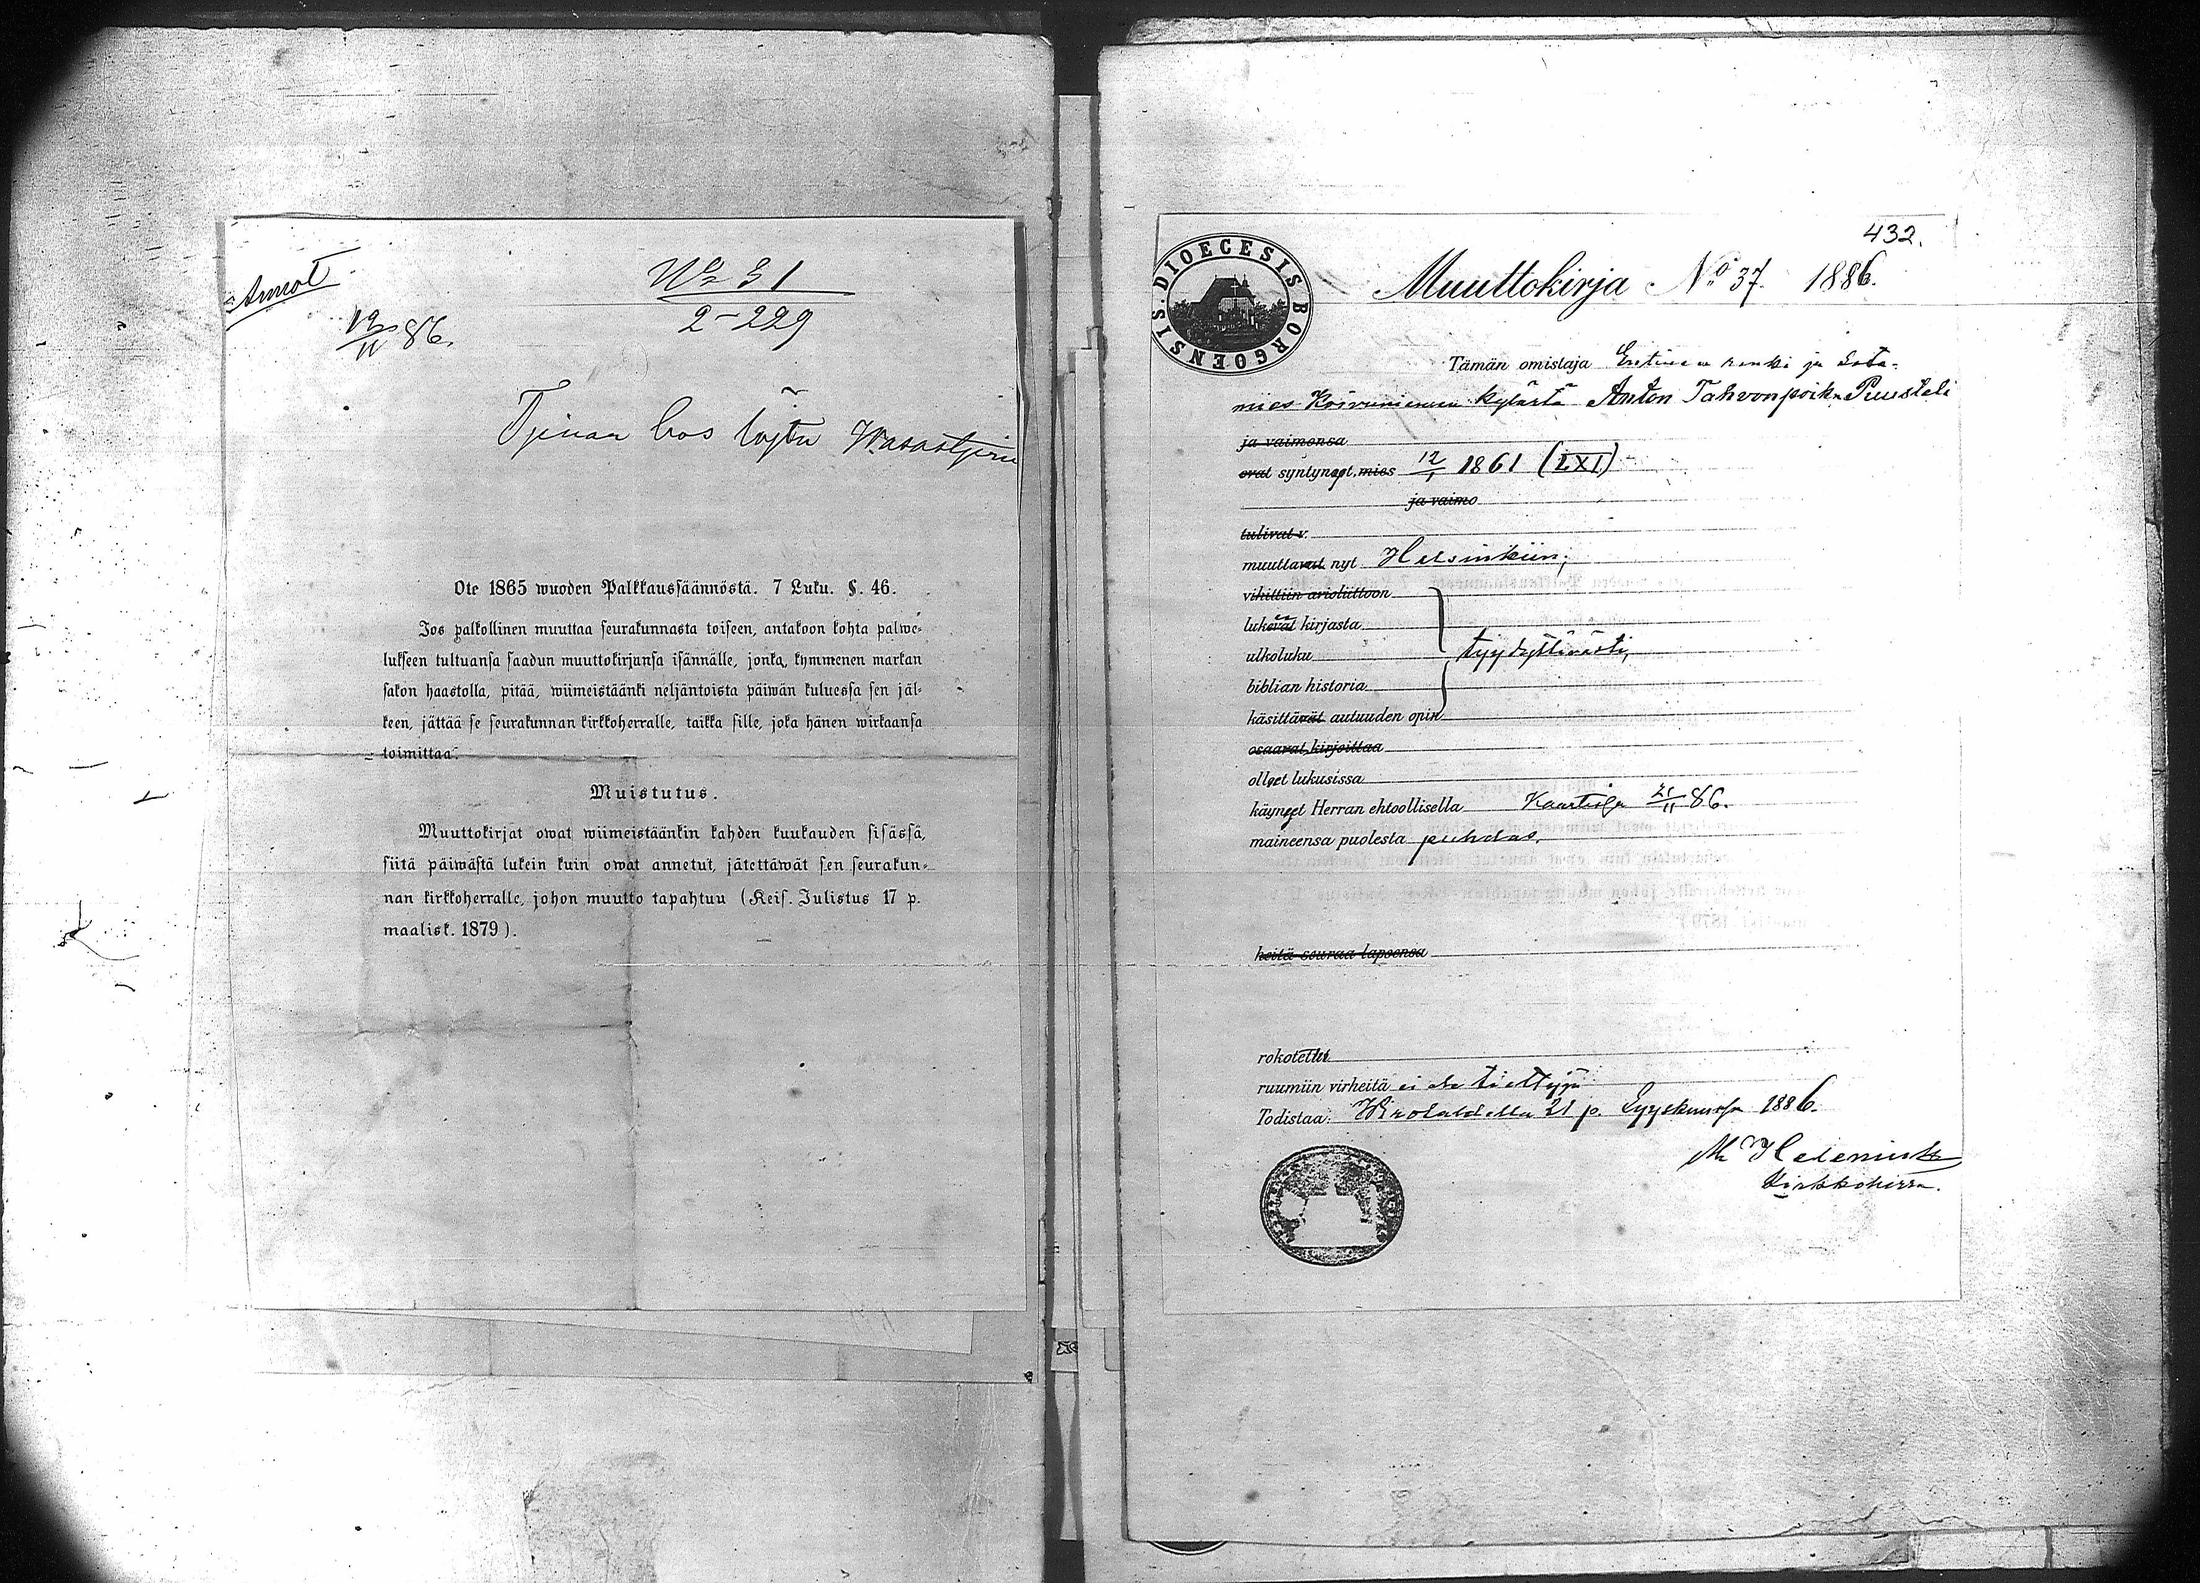 Anmält
12/11 86.
No 31
2-229
Tjenar hos
Ote 1865 wuoden Palkkaussäännöstä. 7 Luku. §. 46.
Jos palkollinen muuttaa seurakunnasta toiseen, antakoon kohta palwe-
lukseen tultuansa saadun muuttokirjansa isännälle, jonka, kymmenen markan
sakon haastolla, pitää, wiimeistäänki neljäntoista päiwän kuluessa sen jäl-
keen, jättää se seurakunnan kirkkoherralle, taikka sille, joka hänen wirkaansa
toimittaa.
Muistutus.
Muuttokirjat owat wiimeistäänkin kahden kuukauden sisässä,
siitä päiwästä lukein kuin owat annetut, jätettäwät sen seurakun-
nan kirkkoherralle, johon muutto tapahtuu (Keis. Julistus 17 p.
maalisk. 1879).
432.
DIOECESIS BORGOENSIS.
Muuttokirja No 37. 1886.
Tämän omistaja Entinen renki ja sota-
mies Koivuniemen kylästä Anton Tahvonpoika Puusteli
ja vaimonsa
ovat syntyneet, mies 12/1 1861 (LXI)
ja vaimo
tulivat v.
muuttavat nyt Helsinkiin;
vihittiin avioliittoon
lukevat kirjasta
ulkoluku tyydyttävästi,
biblian historia
käsittävät autuuden opin
osaavat kirjoittaa
olleet lukusissa
käyneet Herran ehtoollisella Kaartissa 21/11 86.
maineensa puolesta puhdas.
heitä seuraa lapsensa
rokotetut
ruumiin virheitä ei ole tiettyjä
Todistaa: Wirolahdella 21 p. Syyskuussa 1886.
Kirkkoherra.